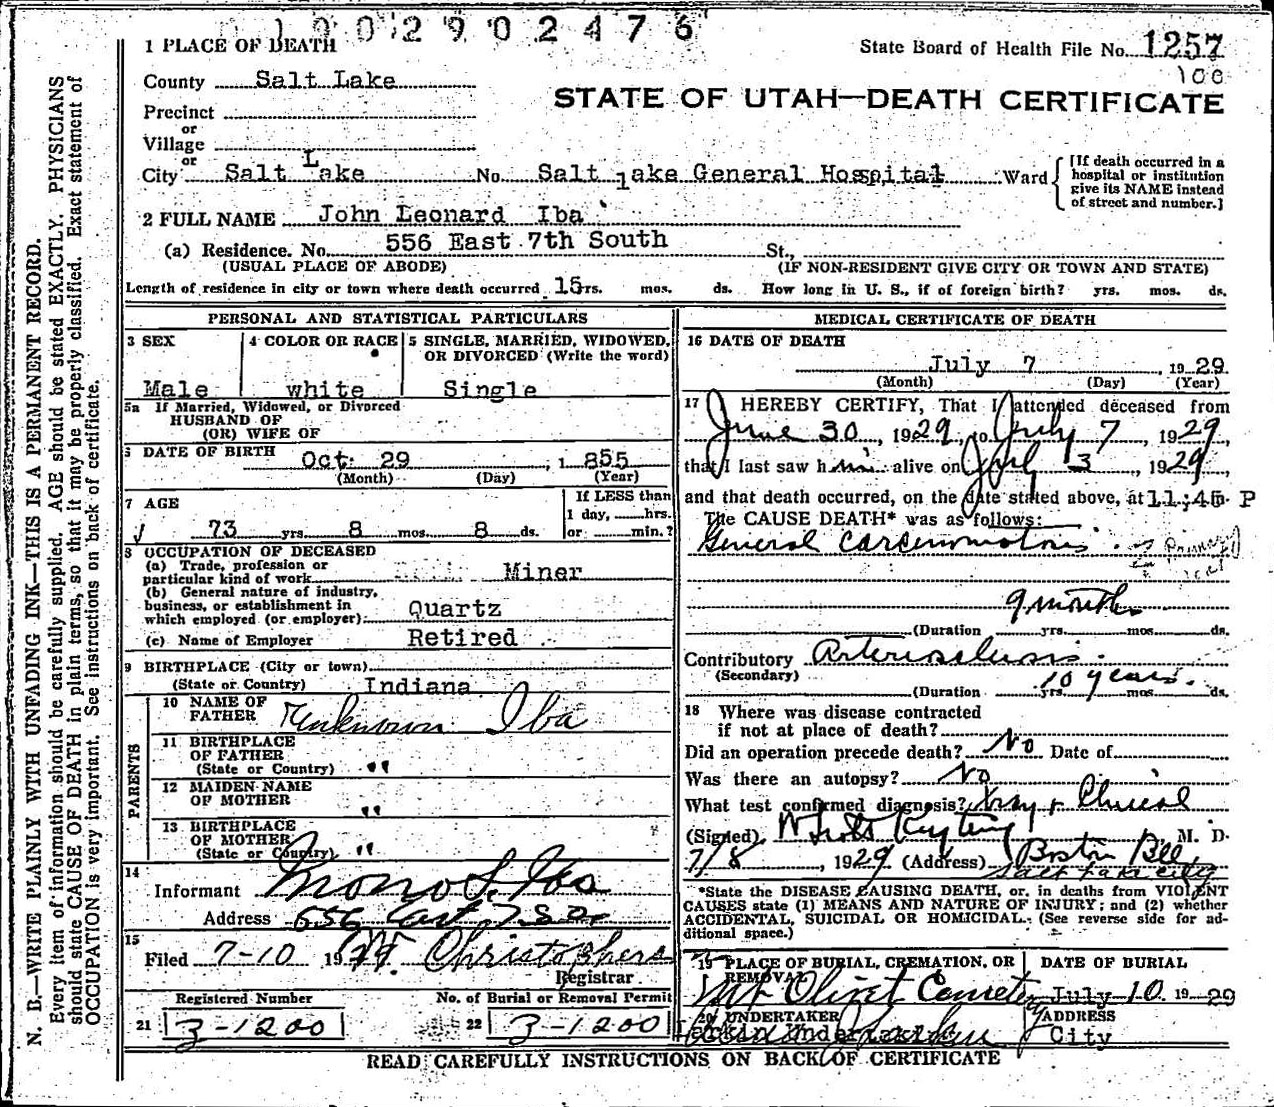 1902902476
1 PLACE OF DEATH
State Board of Health File No. 1257
100
County Salt Lake
STATE OF UTAH—DEATH CERTIFICATE
Precinct
or
Village
or
City Salt Lake No. Salt lake General Hospital Ward
[If death occurred in a hospital or institution give its NAME instead of street and number.]
2 FULL NAME John Leonard Iba
(a) Residence. No. 556 East 7th South St.,
(USUAL PLACE OF ABODE) (IF NON-RESIDENT GIVE CITY OR TOWN AND STATE)
Length of residence in city or town where death occurred 15rs. mos. ds. How long in U. S., if of foreign birth? yrs. mos. ds.
PERSONAL AND STATISTICAL PARTICULARS
3 SEX
Male
4 COLOR OR RACE
white
5 SINGLE, MARRIED, WIDOWED,
OR DIVORCED (Write the word)
Single
5a If Married, Widowed, or Divorced
HUSBAND OF
(OR) WIFE OF
DATE OF BIRTH Oct 29, 1855
(Month) (Day) (Year)
7 AGE
If LESS than
1 day, hrs.
73 yrs. 8 mos. 8 ds. or min.?
8 OCCUPATION OF DECEASED
(a) Trade, profession or
particular kind of work Miner
(b) General nature of industry,
business, or establishment in
which employed (or employer) Quartz
(c) Name of Employer Retired
9 BIRTHPLACE (City or town)
(State or Country) Indiana
PARENTS
10 NAME OF
FATHER Unknown Iba
11 BIRTHPLACE
OF FATHER
(State or Country) "
12 MAIDEN NAME
OF MOTHER "
13 BIRTHPLACE
OF MOTHER
(State or Country) "
14
Informant
Address 556 East 7 So
15
Filed 7-10 1929 Christophers
Registrar
Registered Number No. of Burial or Removal Permit
21 3-1200 22 3-1200
MEDICAL CERTIFICATE OF DEATH
16 DATE OF DEATH
July 7, 1929
(Month) (Day) (Year)
17 I HEREBY CERTIFY, That I attended deceased from
June 30, 1929, to July 7, 1929,
that I last saw him alive on July 3, 1929,
and that death occurred, on the date stated above, at 11;45 P
The CAUSE DEATH* was as follows:
General carcinomatosis
9 months
(Duration yrs. mos. ds.
Contributory Arteriosclerosis
(Secondary) 10 years.
(Duration yrs. mos. ds.
18 Where was disease contracted
if not at place of death?
Did an operation precede death? No Date of
Was there an autopsy? No
What test confirmed diagnosis? Xray + Clinical
(Signed) M. D.
7/8, 1929 (Address) Boston Bldg
Salt Lake City
*State the DISEASE CAUSING DEATH, or, in deaths from VIOLENT
CAUSES state (1) MEANS AND NATURE OF INJURY; and (2) whether
ACCIDENTAL, SUICIDAL OR HOMICIDAL. (See reverse side for ad-
ditional space.)
19 PLACE OF BURIAL, CREMATION, OR
REMOVAL
Mt Olivet Cemetery
DATE OF BURIAL
July 10. 1929
20 UNDERTAKER
ADDRESS
City
READ CAREFULLY INSTRUCTIONS ON BACK OF CERTIFICATE
N. B.—WRITE PLAINLY WITH UNFADING INK—THIS IS A PERMANENT RECORD.
Every item of information should be carefully supplied. AGE should be stated EXACTLY. PHYSICIANS
should state CAUSE OF DEATH in plain terms, so that it may be properly classified. Exact statement of
OCCUPATION is very important. See instructions on back of certificate.